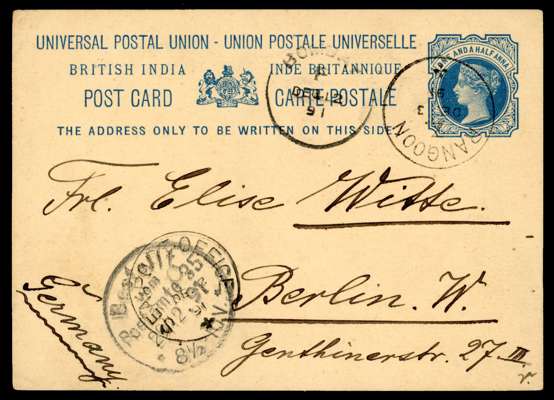 UNIVERSAL POSTAL UNION - UNION POSTALE UNIVERSELLE
BRITISH INDIA INDE BRITANNIQUE
POST CARD CARTE POSTALE
THE ADDRESS ONLY TO BE WRITTEN ON THIS SIDE
ONE AND A HALF ANNA
BOMBAY
DE 12
91
RANGOON
Frl. Elise Witte.
Berlin. W.
Genthinerstr. 27 III
r.
Germany.
OFFICE
8½